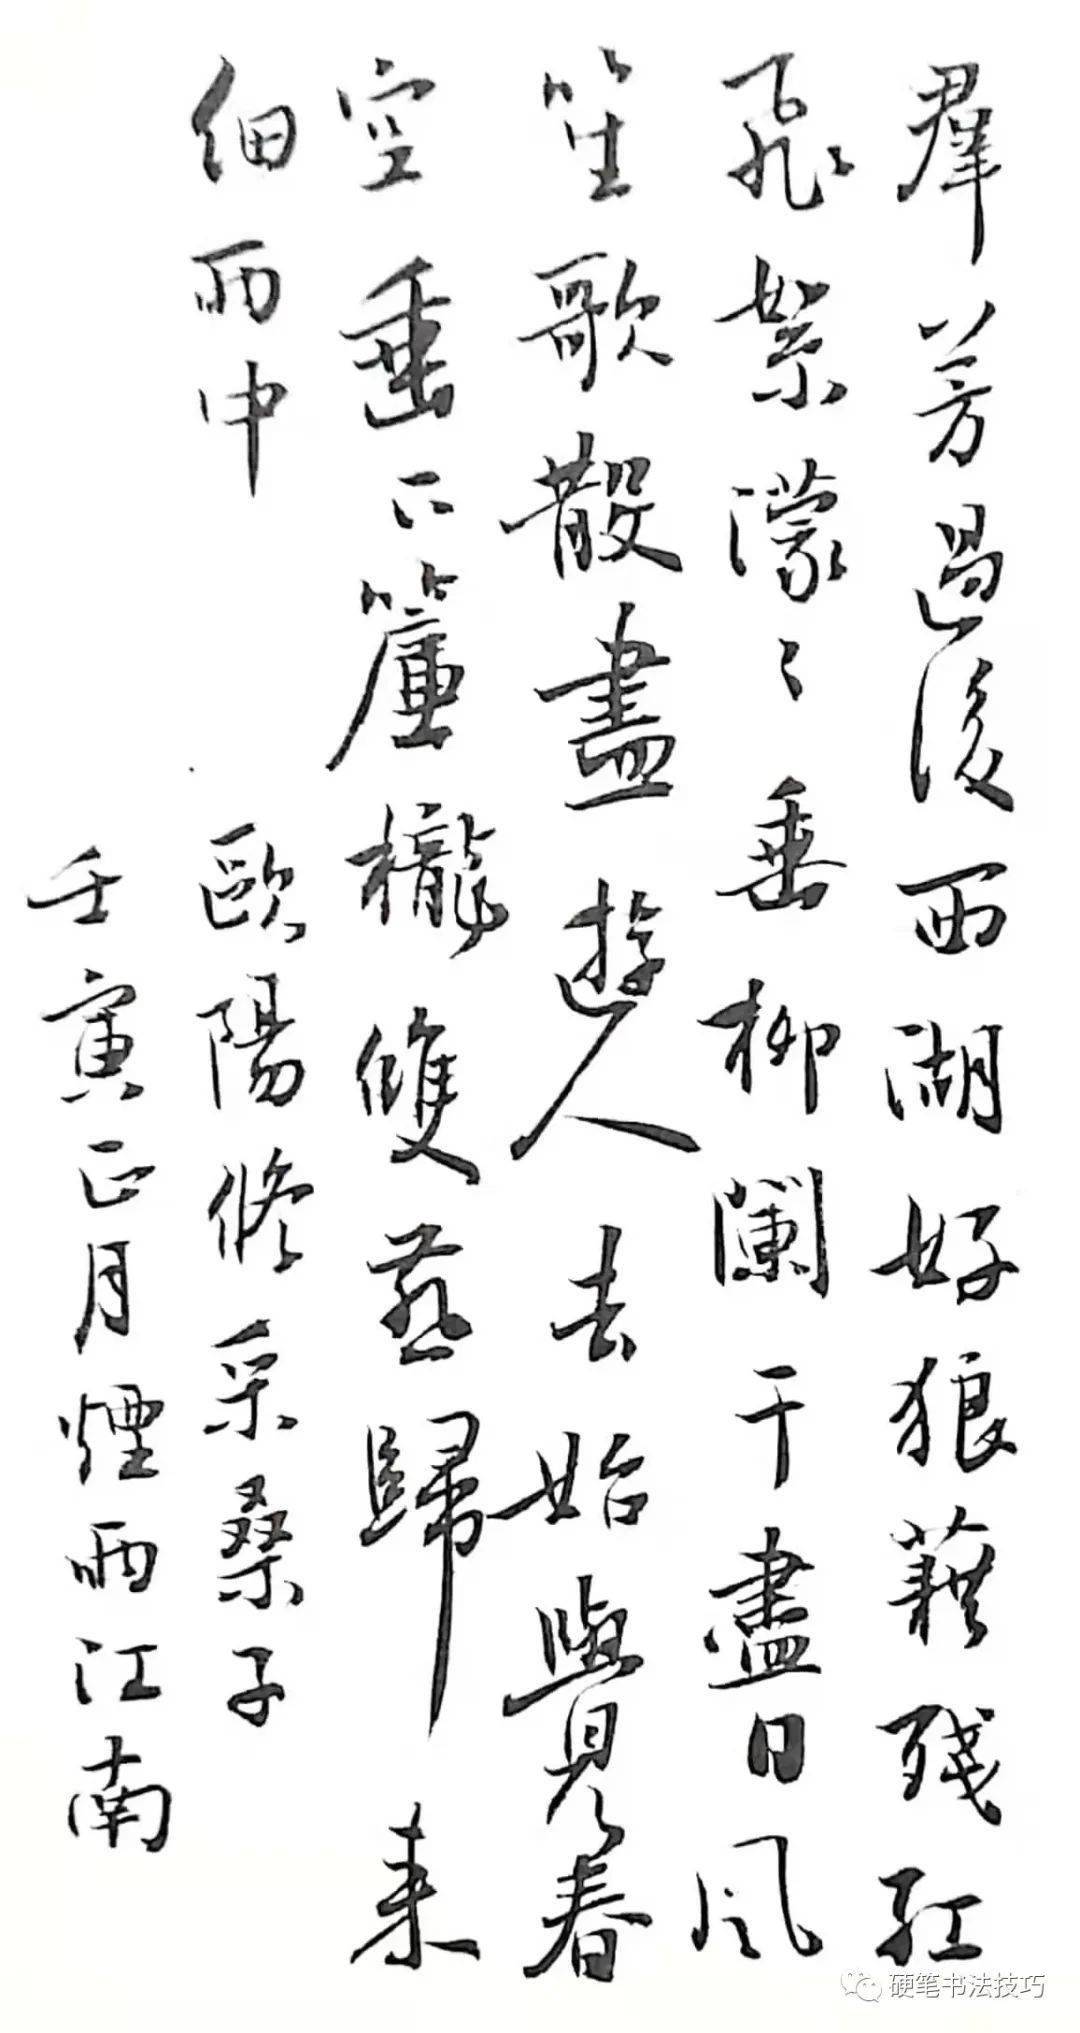 羣芳過後西湖好狼藉残紅
飛絮濛〻垂柳闌干盡日風
笙歌散盡遊人去始覺春
空垂下簾櫳雙燕歸来
細雨中
歐陽修采桑子
壬寅正月煙雨江南
硬笔书法技巧